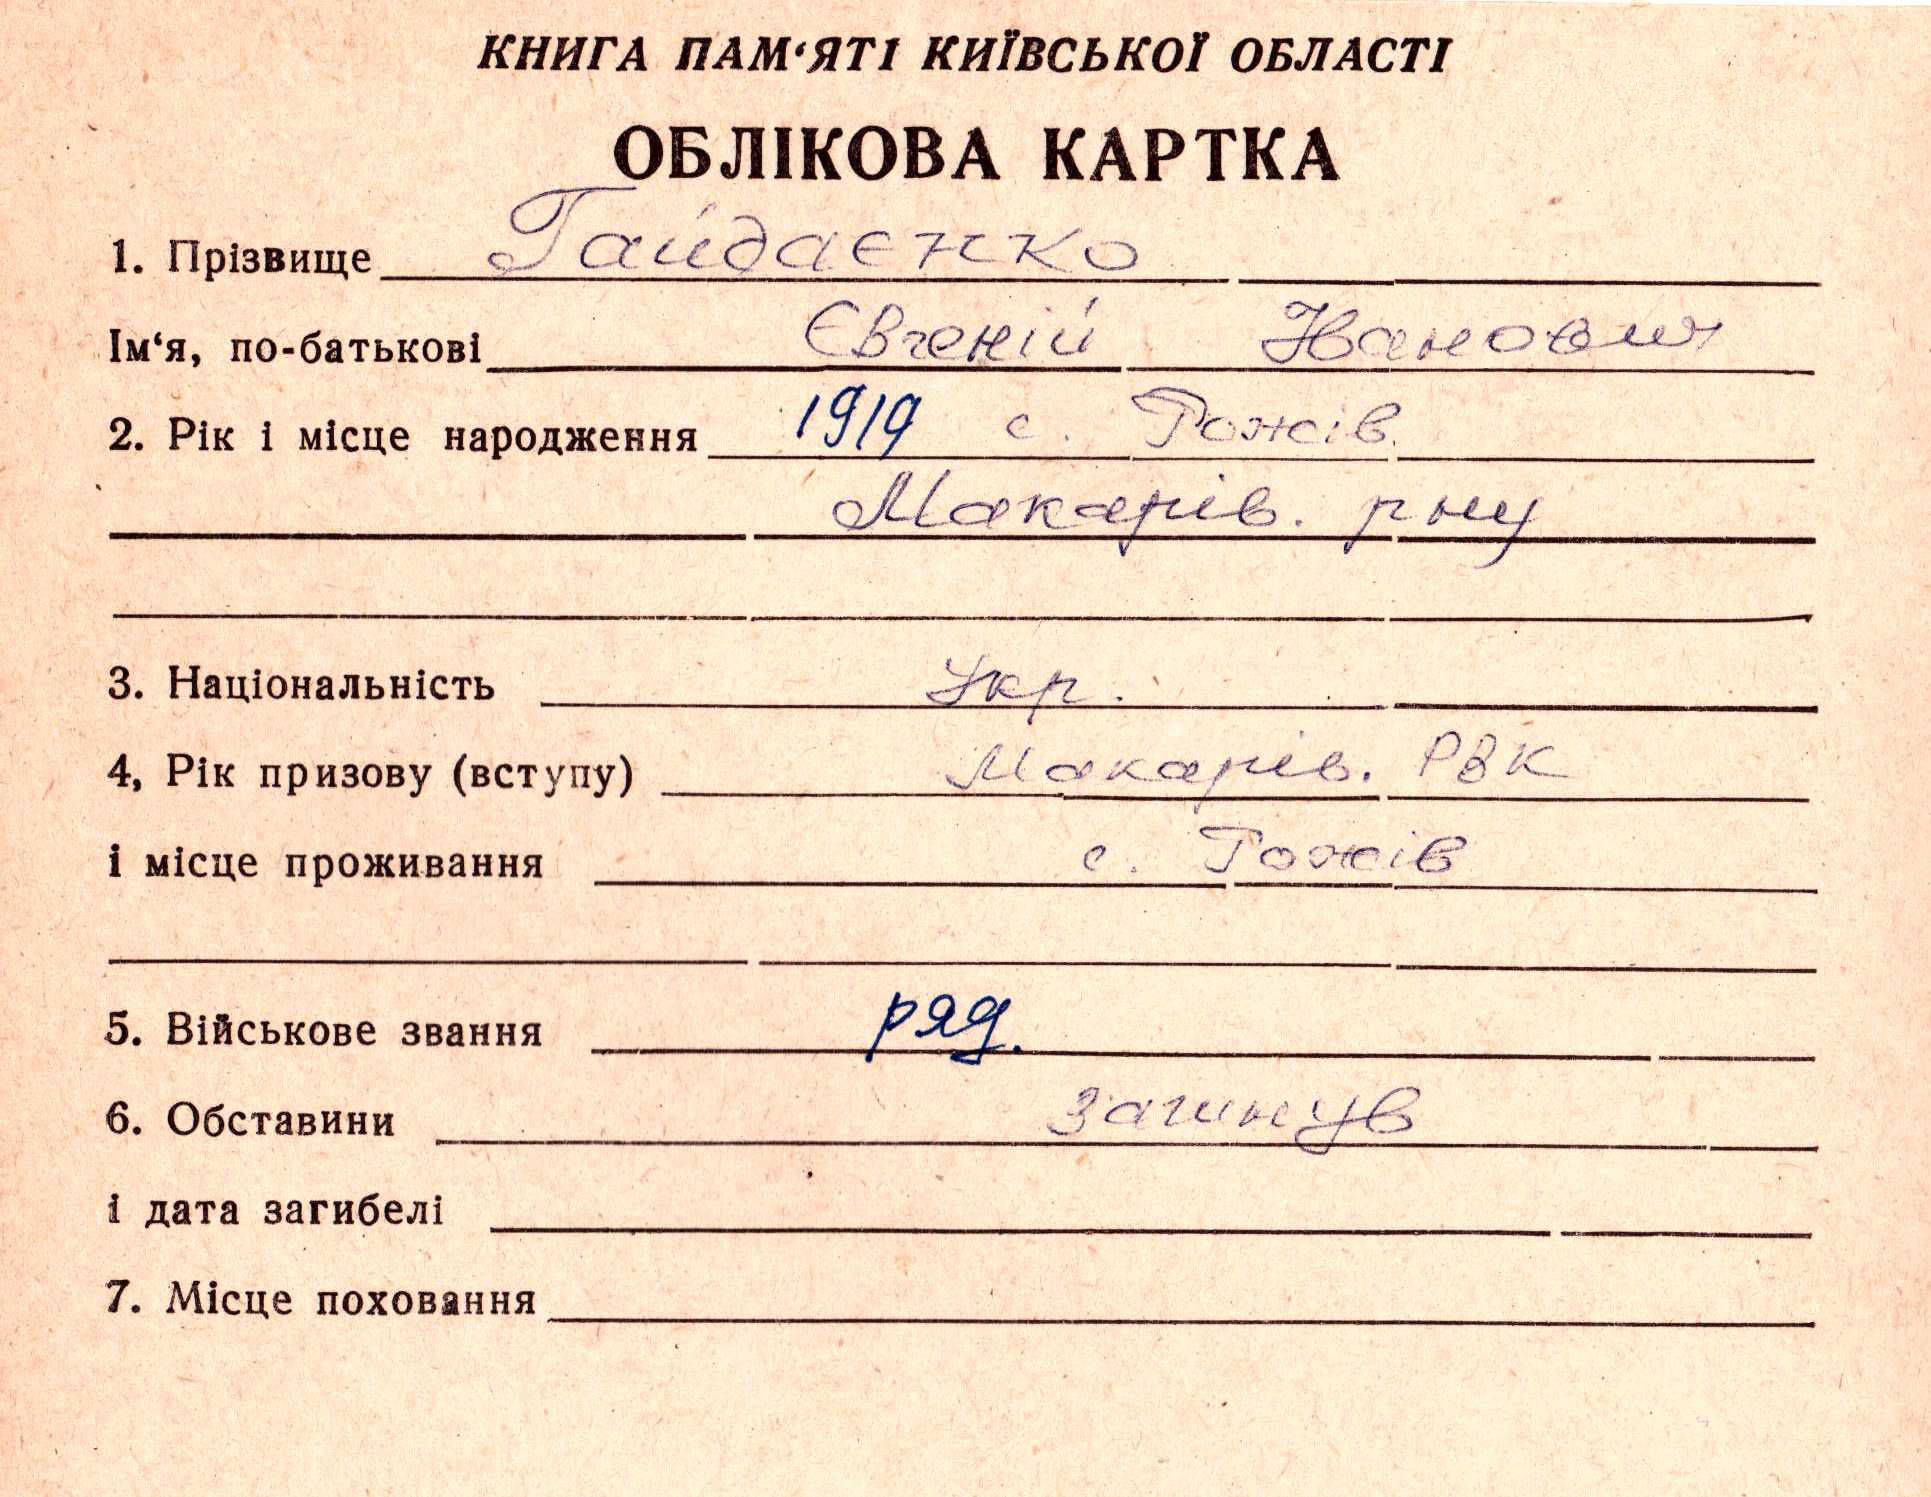 КНИГА ПАМ‘ЯТІ КИЇВСЬКОЇ ОБЛАСТІ
ОБЛІКОВА КАРТКА
1. Прізвище Гайдаєнко
Ім‘я, по-батькові Євгеній Иванович
2. Рік і місце народження 1919 с. Рожів
Макарів. р ну
3. Національність Укр.
4, Рік призову (вступу) Макарів. РВК
і місце проживання с. Рожів
5. Військове звання ряд.
6. Обставини загинув
і дата загибелі
7. Місце поховання